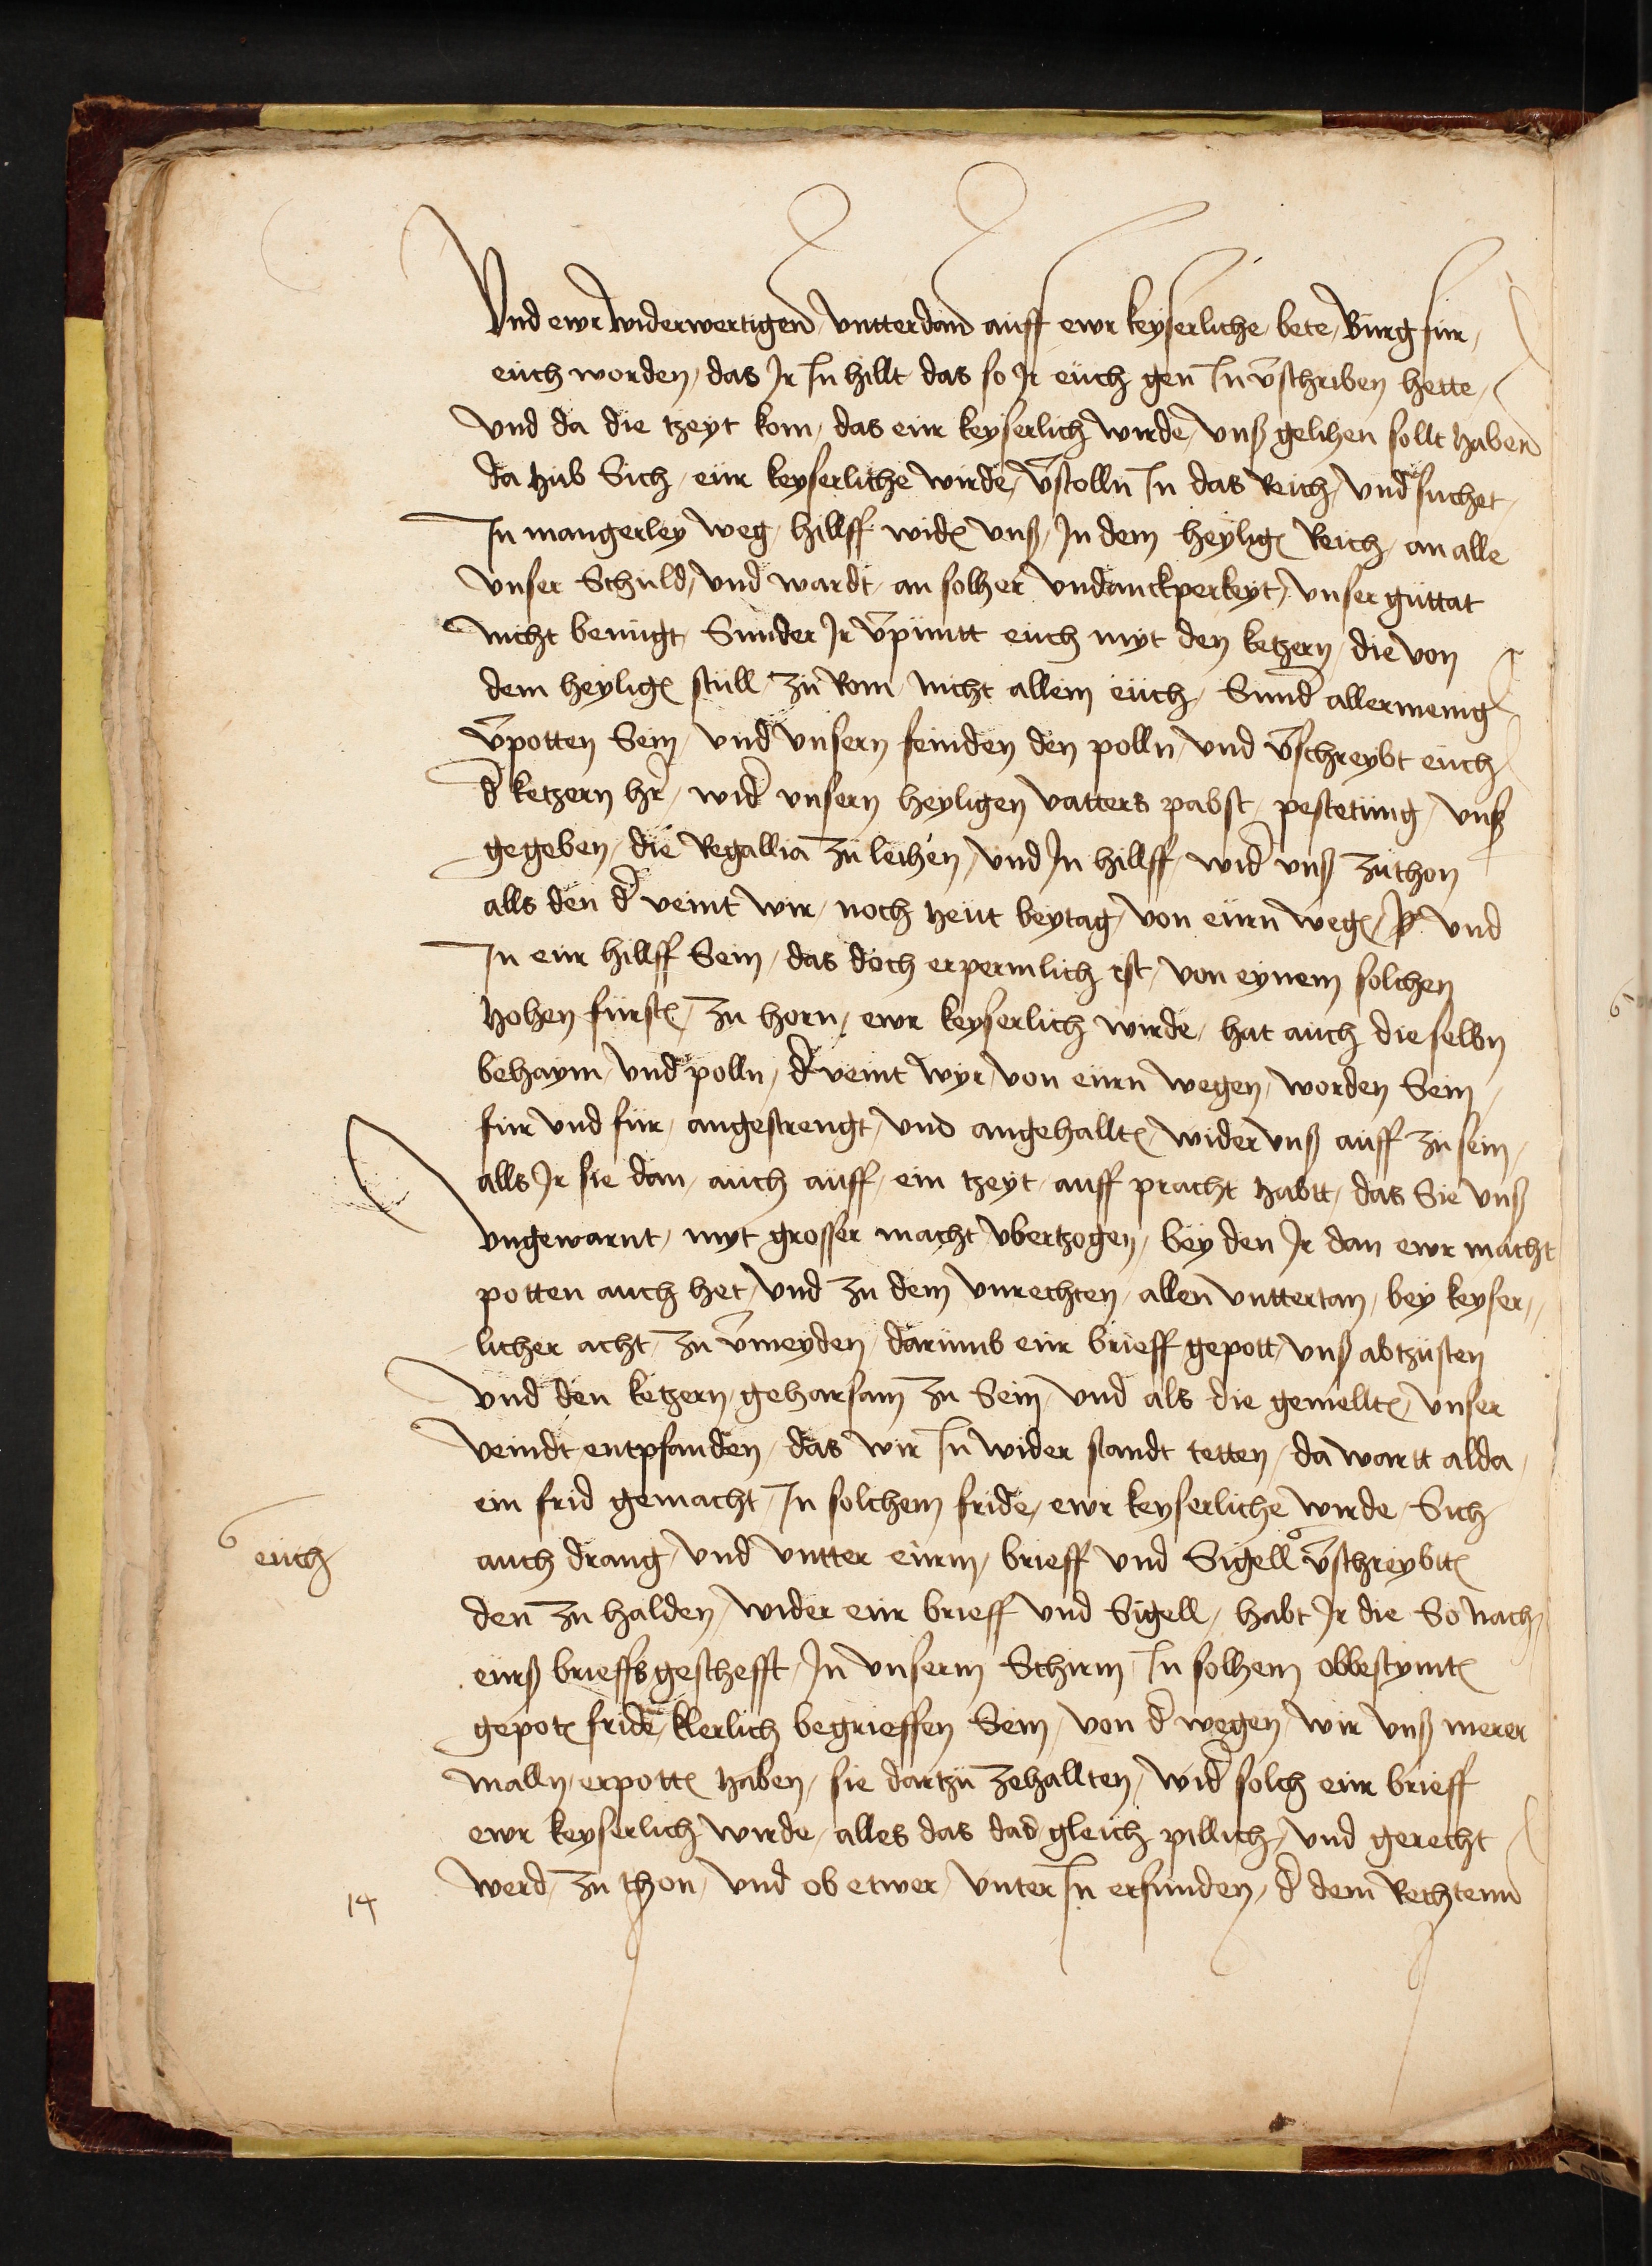 Vnd ewr widerwertigen vntterdan auff ewr keyserliche bete Burg für
euch worden das Jr In hillt das so Jr euch gen In v̄schriben hette
vnd da die tzeyt kom das eur keyserlich wirde vnß gelihen sollt haben
da hub Sich eur keyserliche wirde v̄stolln In das Reich vnd suchet
In mangerley weg hillff wid' vnß Jn dem heylig' Reich an alle
vnser Schuld vnd wardt an solher vndanckperkeyt vnser guttat
nicht benugt Sunder Jr v̄puntt euch myt den ketzern die von
dem heylig' stull zu Rom nicht allein euch Sund' allermenig
v̄potten Sein vnd vnsern feinden den polln vnd v̄schreybt euch
d' ketzern hr' wid' vnsern heyligen vatters pabst pestetung vnß
gegeben die Regallia zu leihen vnd Jn hillff wid' vnß zuthon
alls den d' veint wir noch heut beytag von eurn weg' vnd
In eur hillff Sein das doch erpermlich ist von eynem solchen
hohen furst' zu horn ewr keyserlich wirde hat auch dieselbn
behaym vnd polln d' veint wyr von eurn wegen worden Sein
fur vnd fur angestrengt vnd angehallt' wider vnß auff zu sein
alls Jr sie dan auch auff ein tzeyt auff pracht habtt das Sie vnß
vngewarnt myt grosser macht vbertzogen bey den Jr dan ewr macht
potten auch het vnd zu dem vnrechten allen vnttertan bey keyser
licher acht zu v̄meyden darumb eur brieff gepott vnß abtzusten
vnd den ketzern geharsam zu Sein vnd als die gemellt' vnser
veindt entpfanden das wir In wider standt tetten da wartt alda
ein frid gemacht In solchem fride ewr keyserliche wirde Sich
euch
auch drang vnd vntter eurm brieff vnd Sigell v̄schreybtt'
den zu halden wider eur brieff vnd Sigell habt Jr die So nach
eurß brieffs geschefft Jn vnserm Schirm In solhem obbestymt'
gepot' fride klerlich begrieffen Sein von d' wegen wir vnß merer
malln erpott' haben sie dartzu zehallten wid' solch eur brieff
ewr keyserlich wirde alles das das gleich pillich vnd gerecht
werd zu thon vnd ob etwer vnter In erfunden d' dem Rechtenn
14